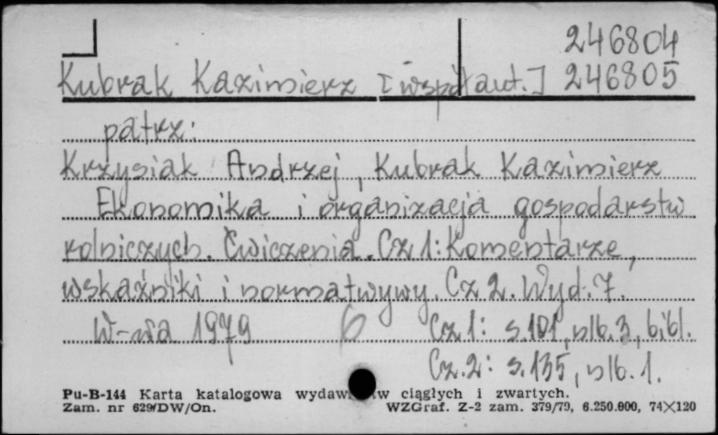 246804
Kubrak Kazimierz [współaut.] 246805
patrz:
Krzysiak Andrzej, Kubrak Kazimierz
Ekonomika i organizacja gospodarstw
rolniczych. Ćwiczenia. Cz 1: Komentarze,
wskaźniki i normatwywy. Cz 2. Wyd. 7.
W-wa 1979 6 Cz. 1: s. 101, nlb. 3, bibl.
Cz. 2: s. 135, nlb. 1.
Pu-B-144 Karta katalogowa wydaw w ciągłych i zwartych.
Zam. nr 629/DW/On. WZGraf. Z-2 zam. 379/79, 6.250.000, 74×120